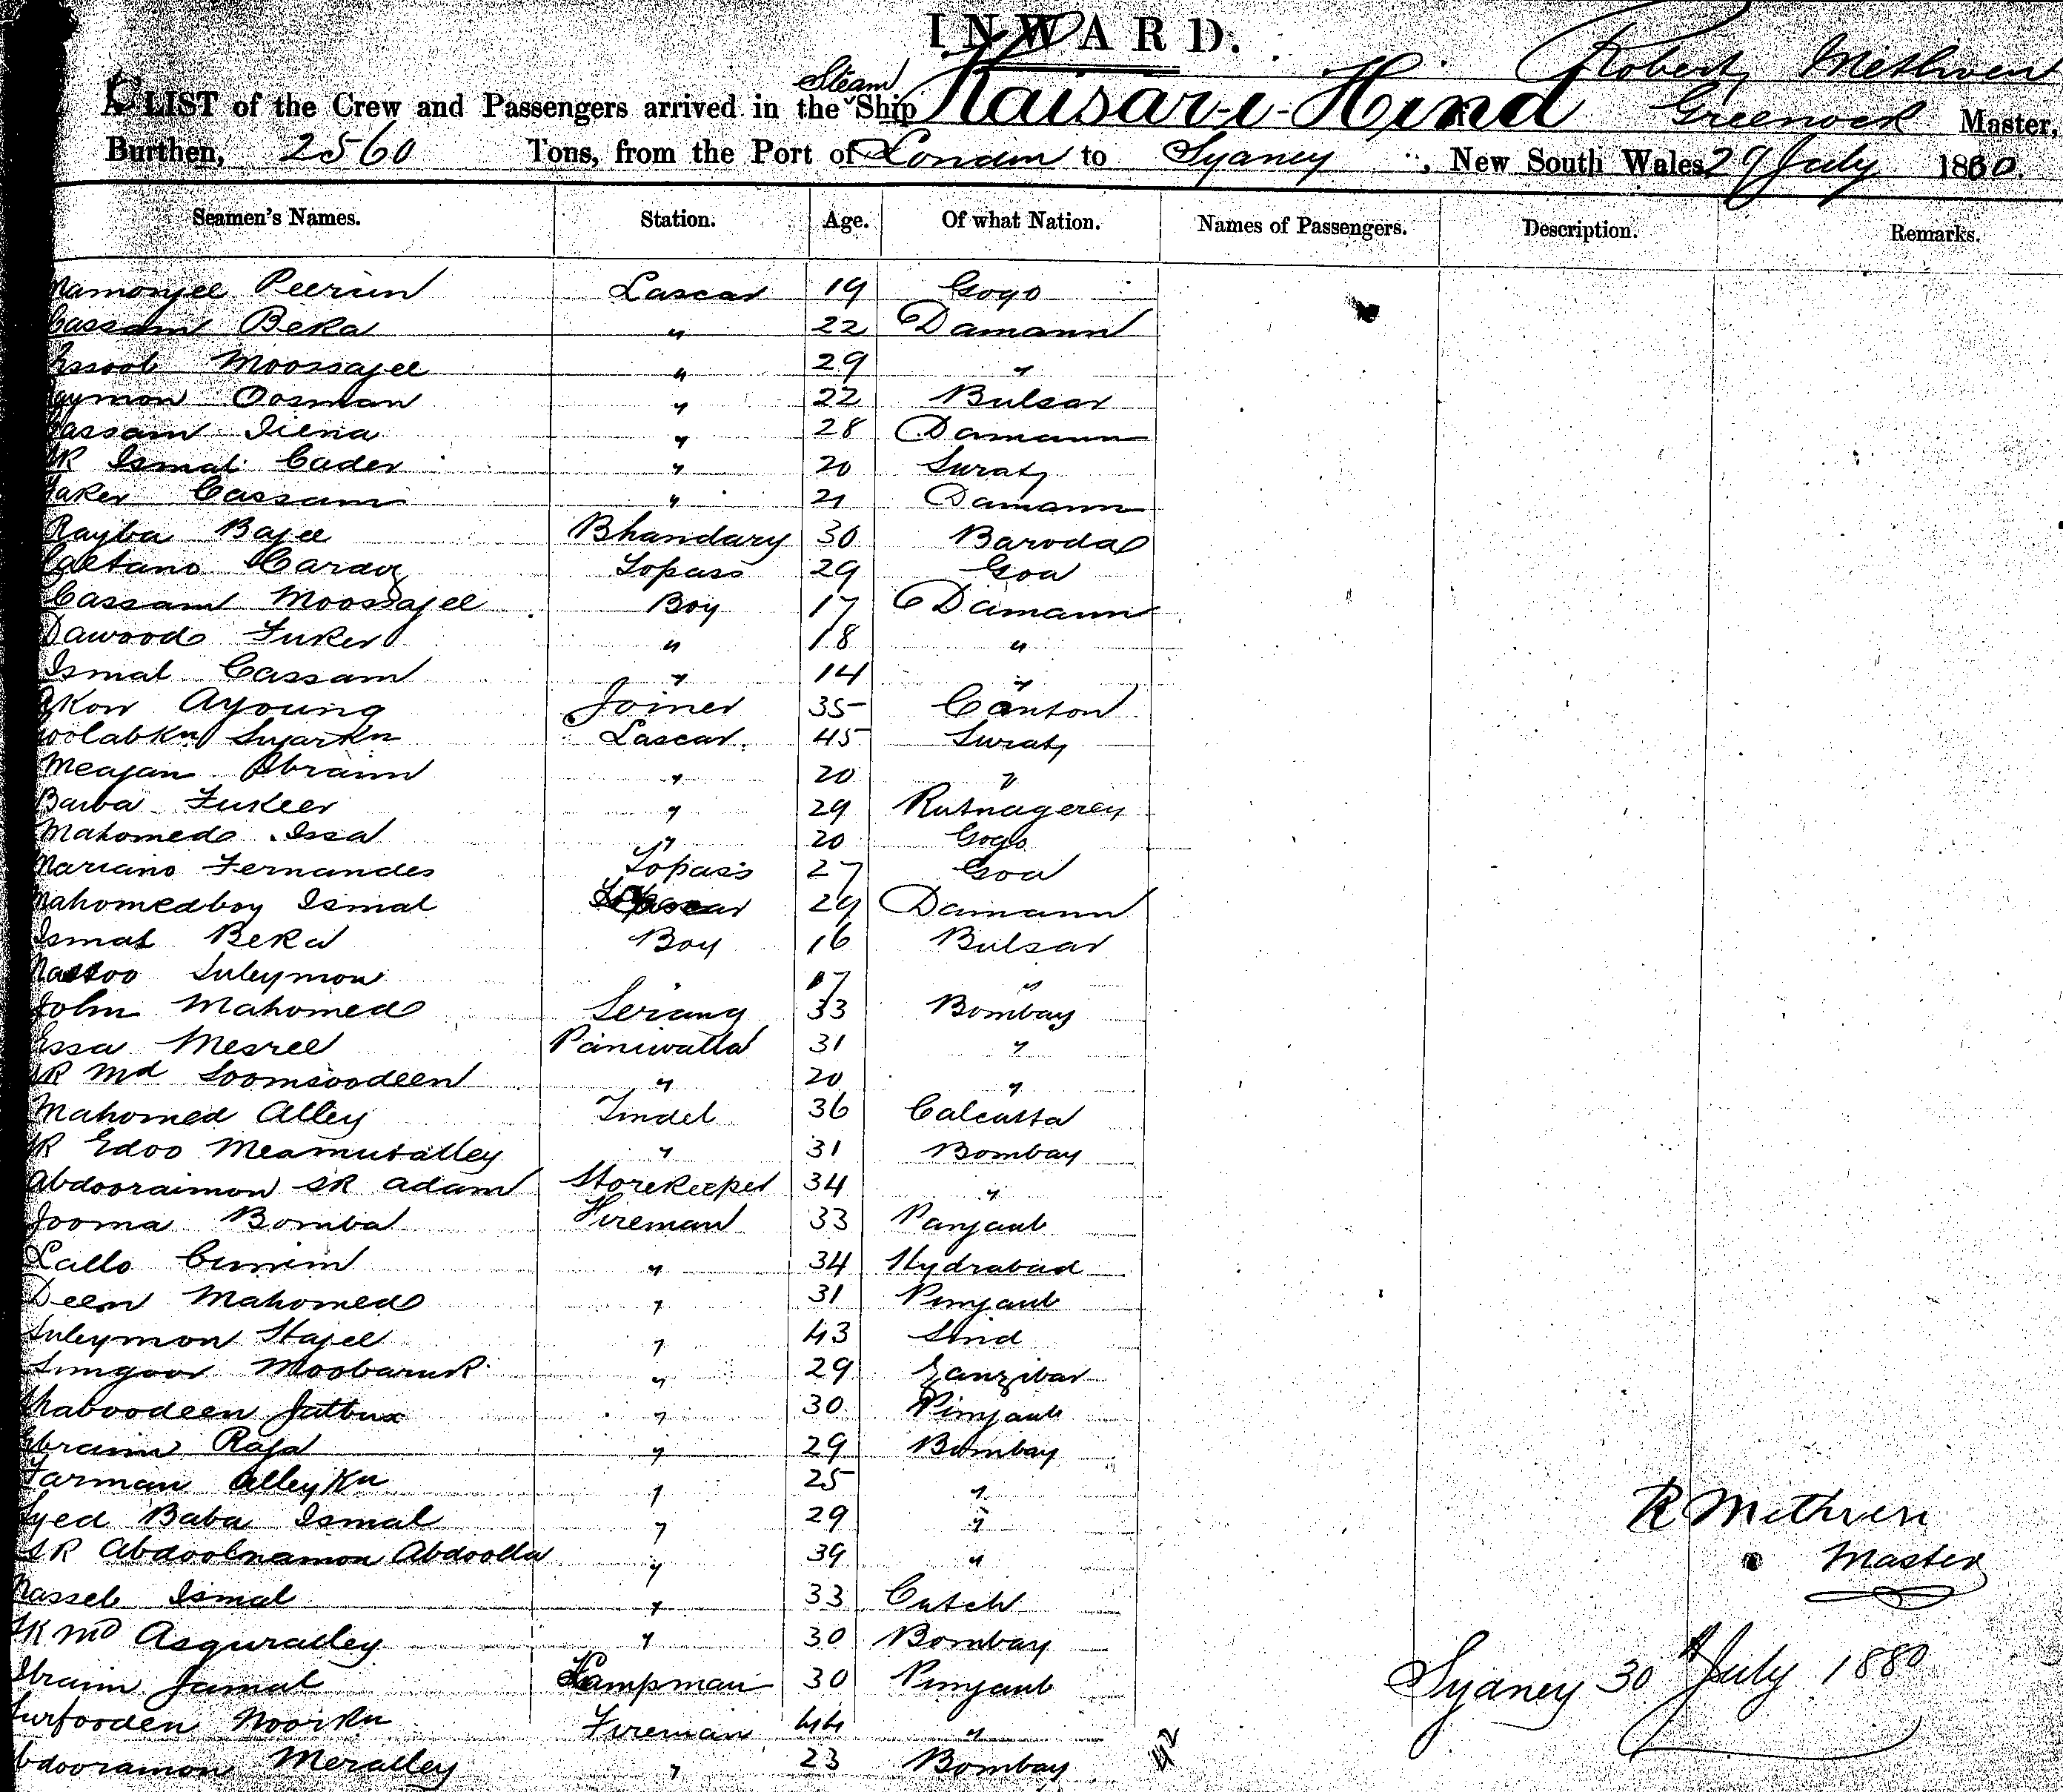 INWARD.
Robert Methven
A LIST of the Crew and Passengers arrived in the Steam Ship Kaisar-i-Hind Greenock Master,
Burthen, 2560 Tons, from the Port of London to Sydney, New South Wales 29 July 1880.
Seamen's Names. Station. Age. Of what Nation. Names of Passengers. Description. Remarks.
Peerun Lascar 19 Gogo
Cassam Beka " 22 Damann
Moossajee " 29 "
Oosman " 22 Bulsar
Cassam " 28 Damann
SR Ismal Cader " 20 Surat
Cassam " 21 Damann
Rayba Bajee Bhandary 30 Baroda
Caetano Topass 29 Goa
Cassam Moossajee Boy 17 Damann
Dawood Fuker " 18 "
Ismal Cassam " 14 "
Ayoung Joiner 35 Canton
Lascar 45 Surat
Meajan Ibraim " 20 "
Bawa Fukeer " 29 Rutnagerey
Mahomed Issa " 20 Gogo
Mariano Fernandes Topass 27 Goa
Mahomedboy Ismal Lascar 29 Damann
Ismal Beka Boy 16 Bulsar
Suleymon " 17 "
John Mahomed Serang 33 Bombay
Essa Mesree Paniwalla 31 "
SR Md Loomsoodeen " 20 "
Mahomed Alley Tindel 36 Calcutta
SR Edoo Meamutalley " 31 Bombay
Abdooraimon SR Adam Storekeeper 34 "
Jooma Bomba Fireman 33 Panjaub
Lallo Cumim " 34 Hydrabad
Deen Mahomed " 31 Punjaub
Suleymon Hajee " 43 Sind
Sungoor Moobaruk " 29 Zanzibar
Shaboodeen Jutbux " 30 Punjaub
Ebraim Raja " 29 Bombay
Farman Alley Kn " 25 "
Syed Baba Ismal " 29 "
R Methven
SR Abdoolnamon Abdoolla " 39 "
Master
Nasseb Ismal " 33 Cutch
SK Md Asguralley " 30 Bombay
Ibraim Jamal Lampman 30 Punjaub
Sydney 30th July 1880
Surfooden Noorkn Fireman 44 "
Abdooramon Meralley " 23 Bombay
42